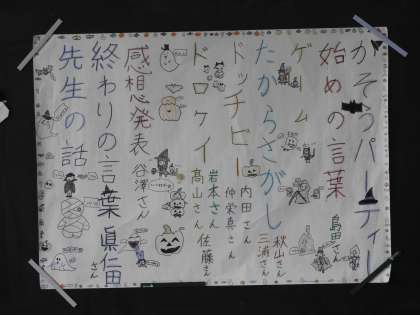 かそうパーティー
始めの言葉 島田さん
ゲーム
たからさがし 秋山さん
三浦さん
ドッチビー 内田さん
仲栄真さん
ドロケイ 岩本さん
髙山さん 佐藤さん
感想発表 谷澤さん
終わりの言葉 眞仁田さん
先生の話